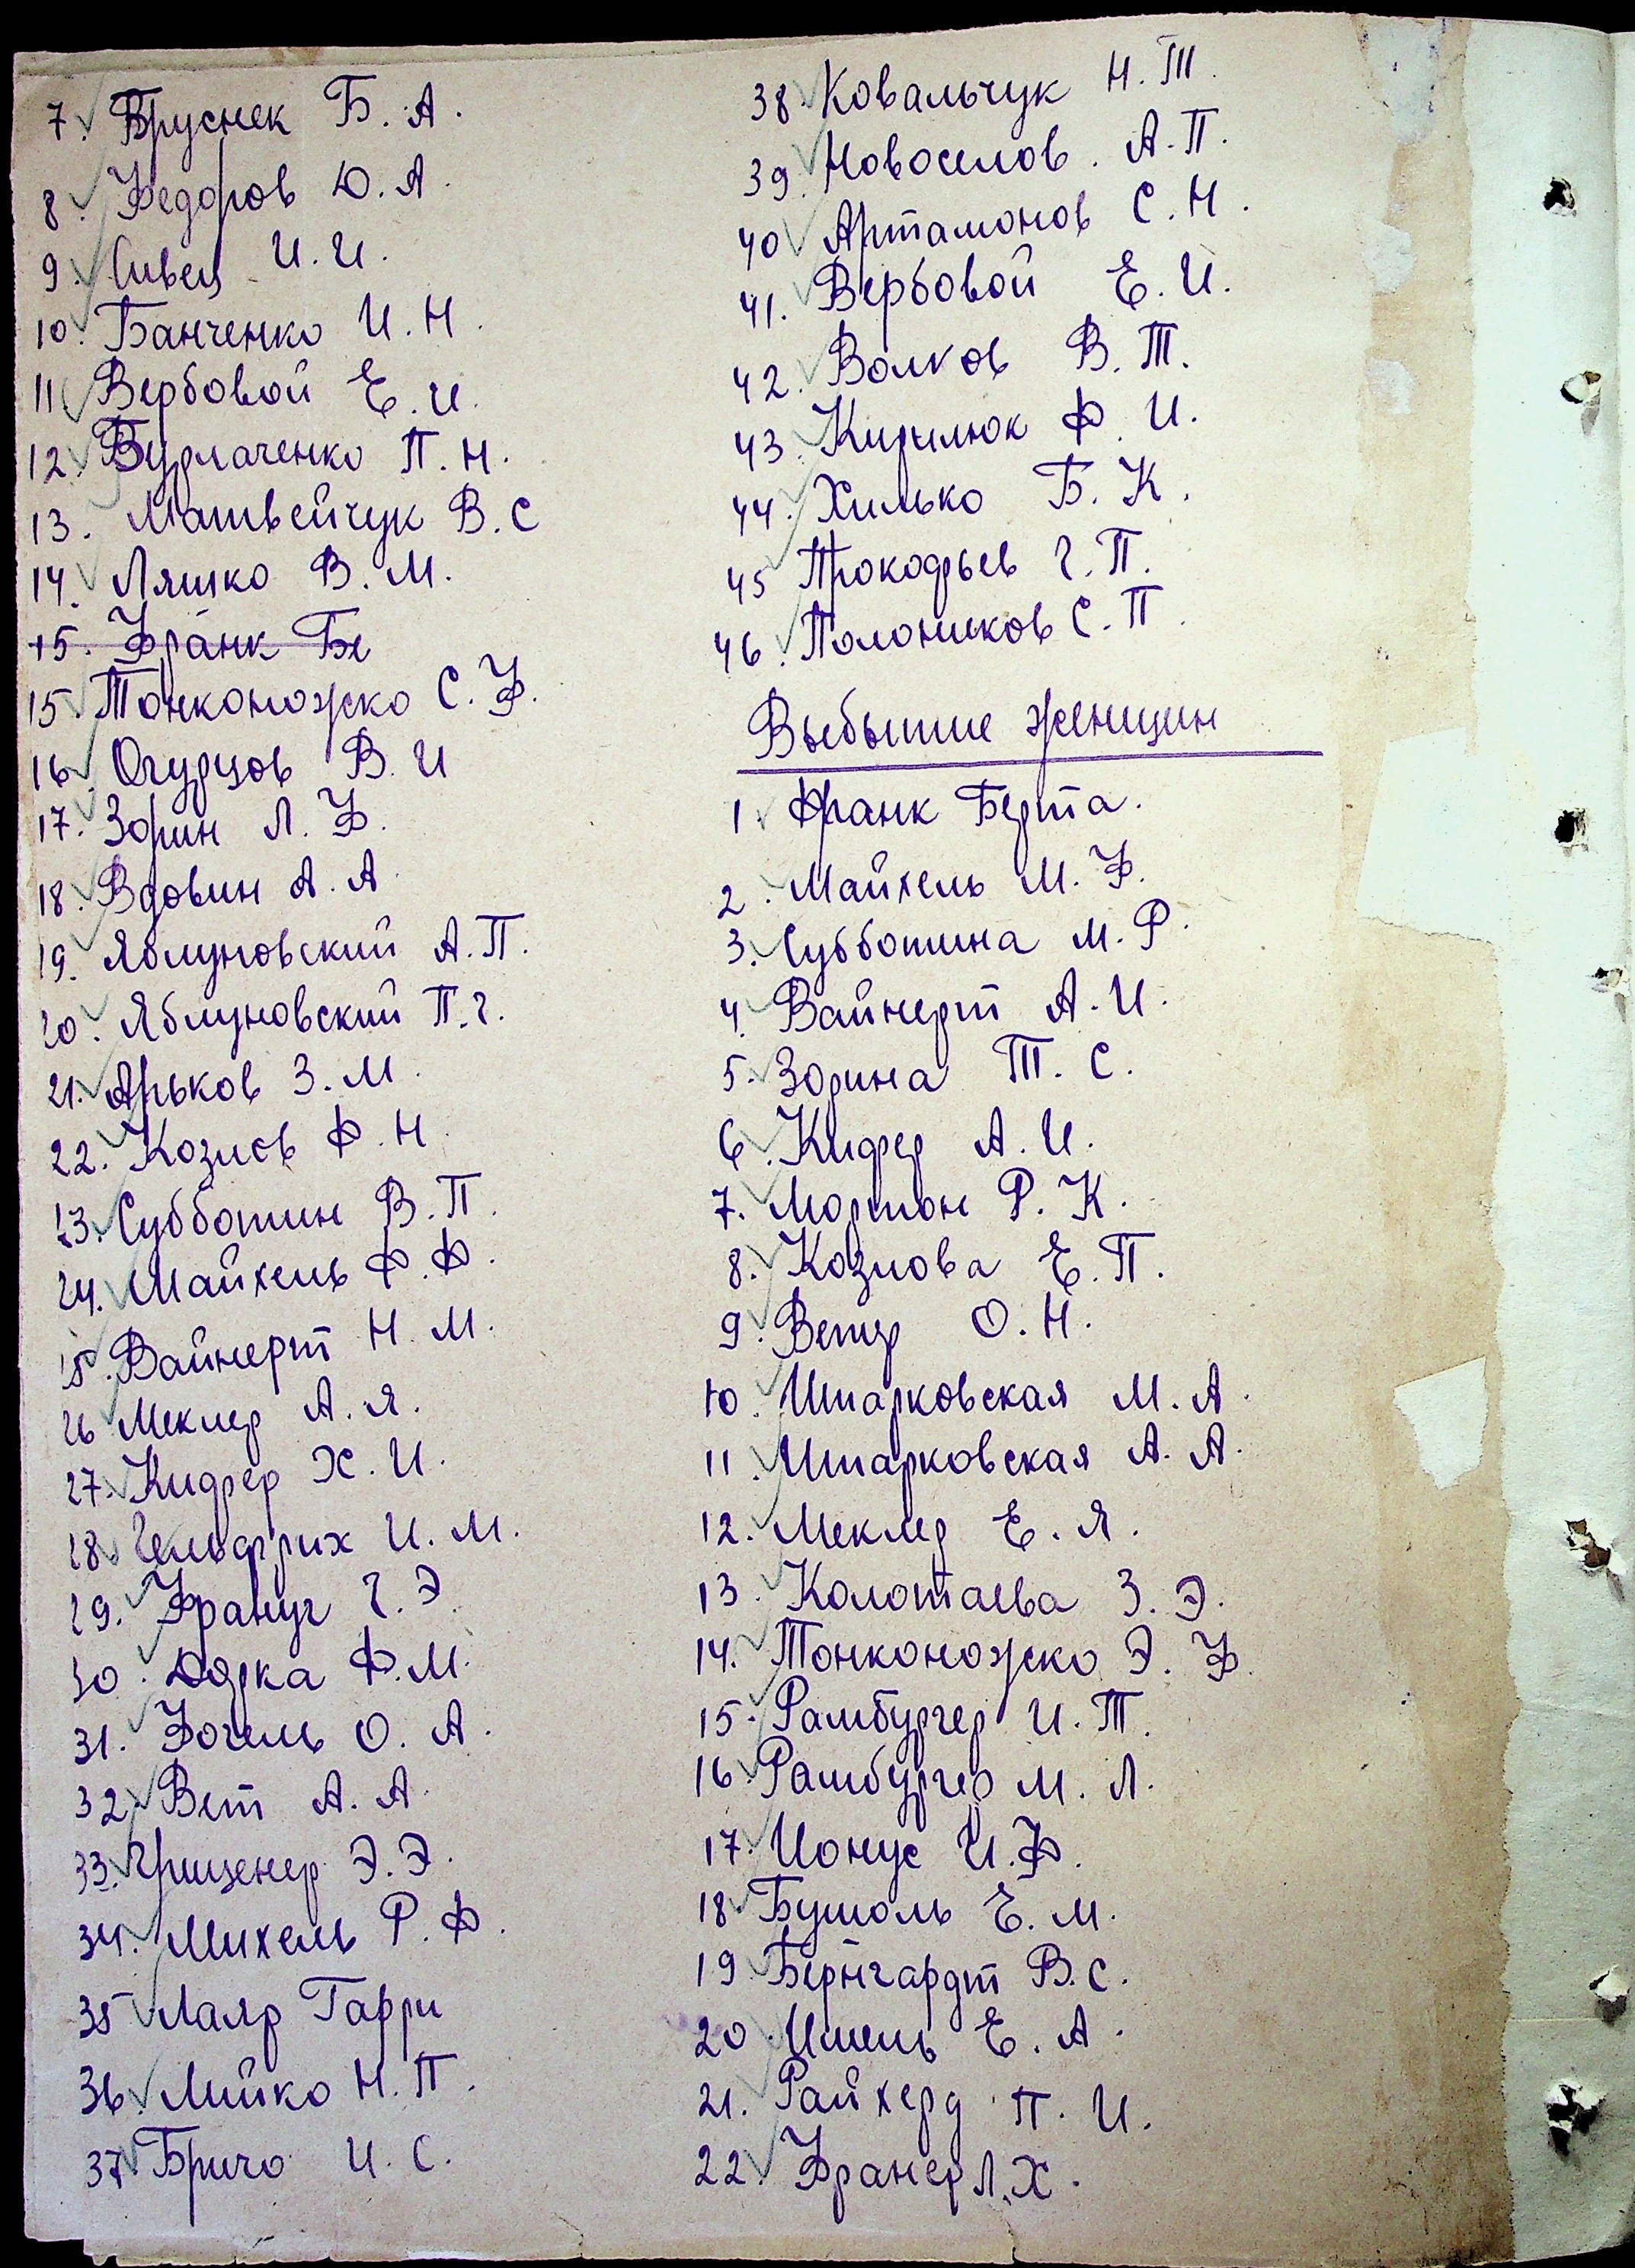 7. Бруснек Б. А.
8. Федоров Ю. А.
9. Сивец И. И.
10. Банченко И. Н.
11 Вербовой Е. И.
12. Бурлаченко П. Н.
13. Матвейчук В. С
14. Ляшко В. М.
15. Франк Бе
15. Тонконожко С. Ф.
16. Огурцов В. И
17. Зорин Л. Ф.
18. Вдовин А. А.
19. Яблуновский А. П.
20. Яблуновский П. Г.
21. Арьков З. М.
22. Козлов Ф. Н.
23. Субботин В. П.
24. Майхель Ф. Ф.
25. Вайнерт Н. М.
26 Меклер А. Я.
27. Кифер Х. И.
28. Гельфрих И. М.
29. Франуг Г. Э.
30. Доярка Ф. М.
31. Фогель О. А.
32. Вет А. А.
33. Грищенер Э. Э.
34. Михель Р. Ф.
35 Лаяр Гарри
36. Лийко Н. П.
37. Бричо И. С.
38. Ковальчук Н. Т.
39. Новоселов А. П.
40. Артамонов С. Н.
41. Вербовой Е. И.
42. Волков В. Т.
43. Кирилюк Ф. И.
44. Хилько Б. К.
45 Прокофьев Г. П.
46. Полоников С. П.
Выбытие женщин
1. Франк Берта.
2. Майхель М. Ф.
3. Субботина М. Р.
4. Вайнерт А. И.
5. Зорина Т. С.
6. Кифер А. И.
7. Мортон Р. К.
8. Козлова Е. П.
9. Ветр О. Н.
10. Шпарковская М. А.
11. Шпарковская А. А.
12. Меклер Е. Я.
13. Колотаева З. Э.
14. Тонконожко Э. Ф.
15. Рамбургер И. Т.
16. Рамбургер М. Л.
17. Ионус И. Ф.
18. Бушоль Е. М.
19. Бернгардт В. С.
20. Ишель Е. А.
21. Райхерд П. И.
22. Франер Л. Х.